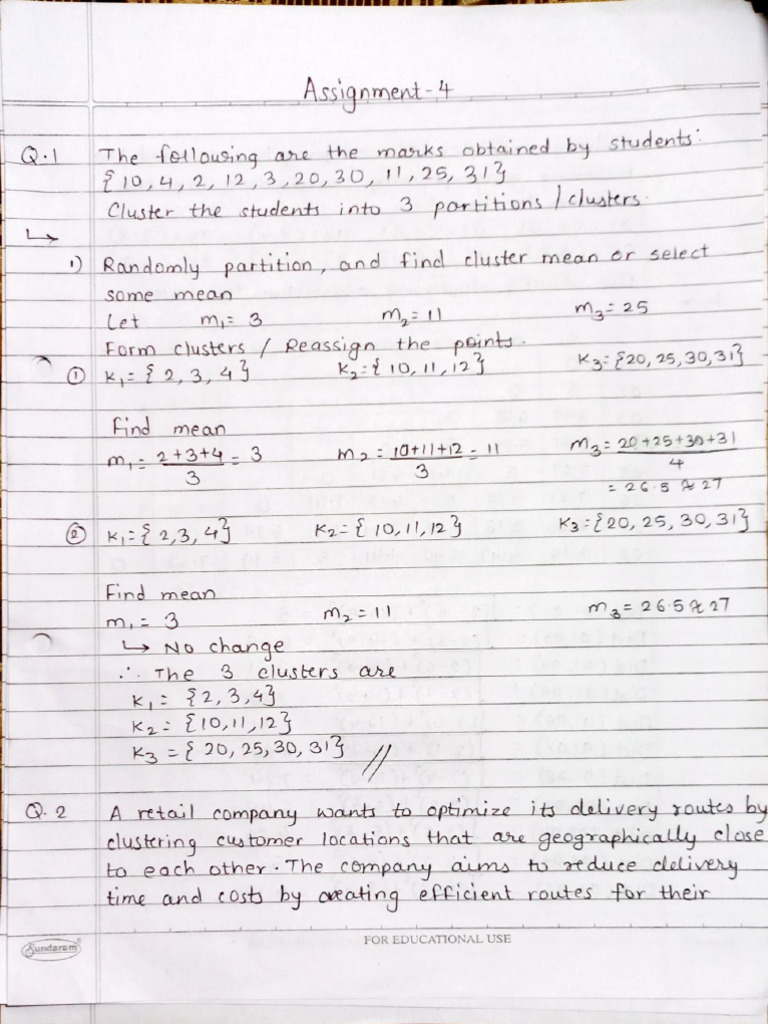 Assignment-4
Q.1 The following are the marks obtained by students:
{10, 4, 2, 12, 3, 20, 30, 11, 25, 31}
Cluster the students into 3 partitions / clusters.
↳
1) Randomly partition, and find cluster mean or select
some mean
Let m₁= 3 m₂= 11 m₃= 25
Form clusters / Reassign the points.
① K₁= {2, 3, 4} K₂= {10, 11, 12} K₃= {20, 25, 30, 31}
Find mean
m₁= 2+3+4/3 = 3 m₂ = 10+11+12/3 = 11 m₃= 20+25+30+31/4
= 26.5 ≈ 27
② K₁= {2,3, 4} K₂= {10, 11, 12} K₃= {20, 25, 30, 31}
Find mean
m₁= 3 m₂= 11 m₃= 26.5 ≈ 27
↳ No change
∴ The 3 clusters are
K₁ = {2,3,4}
K₂ = {10,11,12}
K₃ = {20, 25, 30, 31} //
Q.2 A retail company wants to optimize its delivery routes by
clustering customer locations that are geographically close
to each other. The company aims to reduce delivery
time and costs by creating efficient routes for their
Sundaram FOR EDUCATIONAL USE